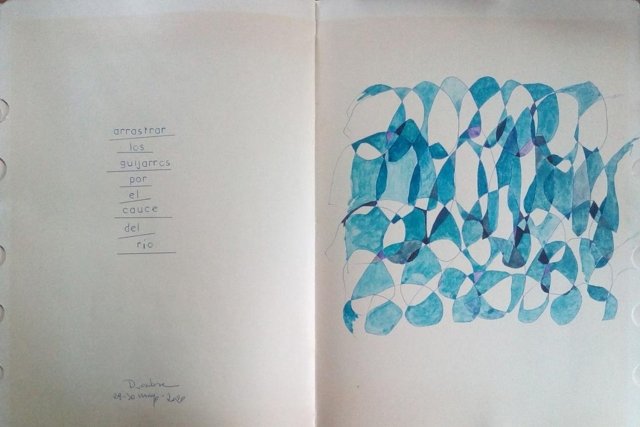 arrastrar
los
guijarros
por
el
cauce
del
río
29-30 mayo - 2020